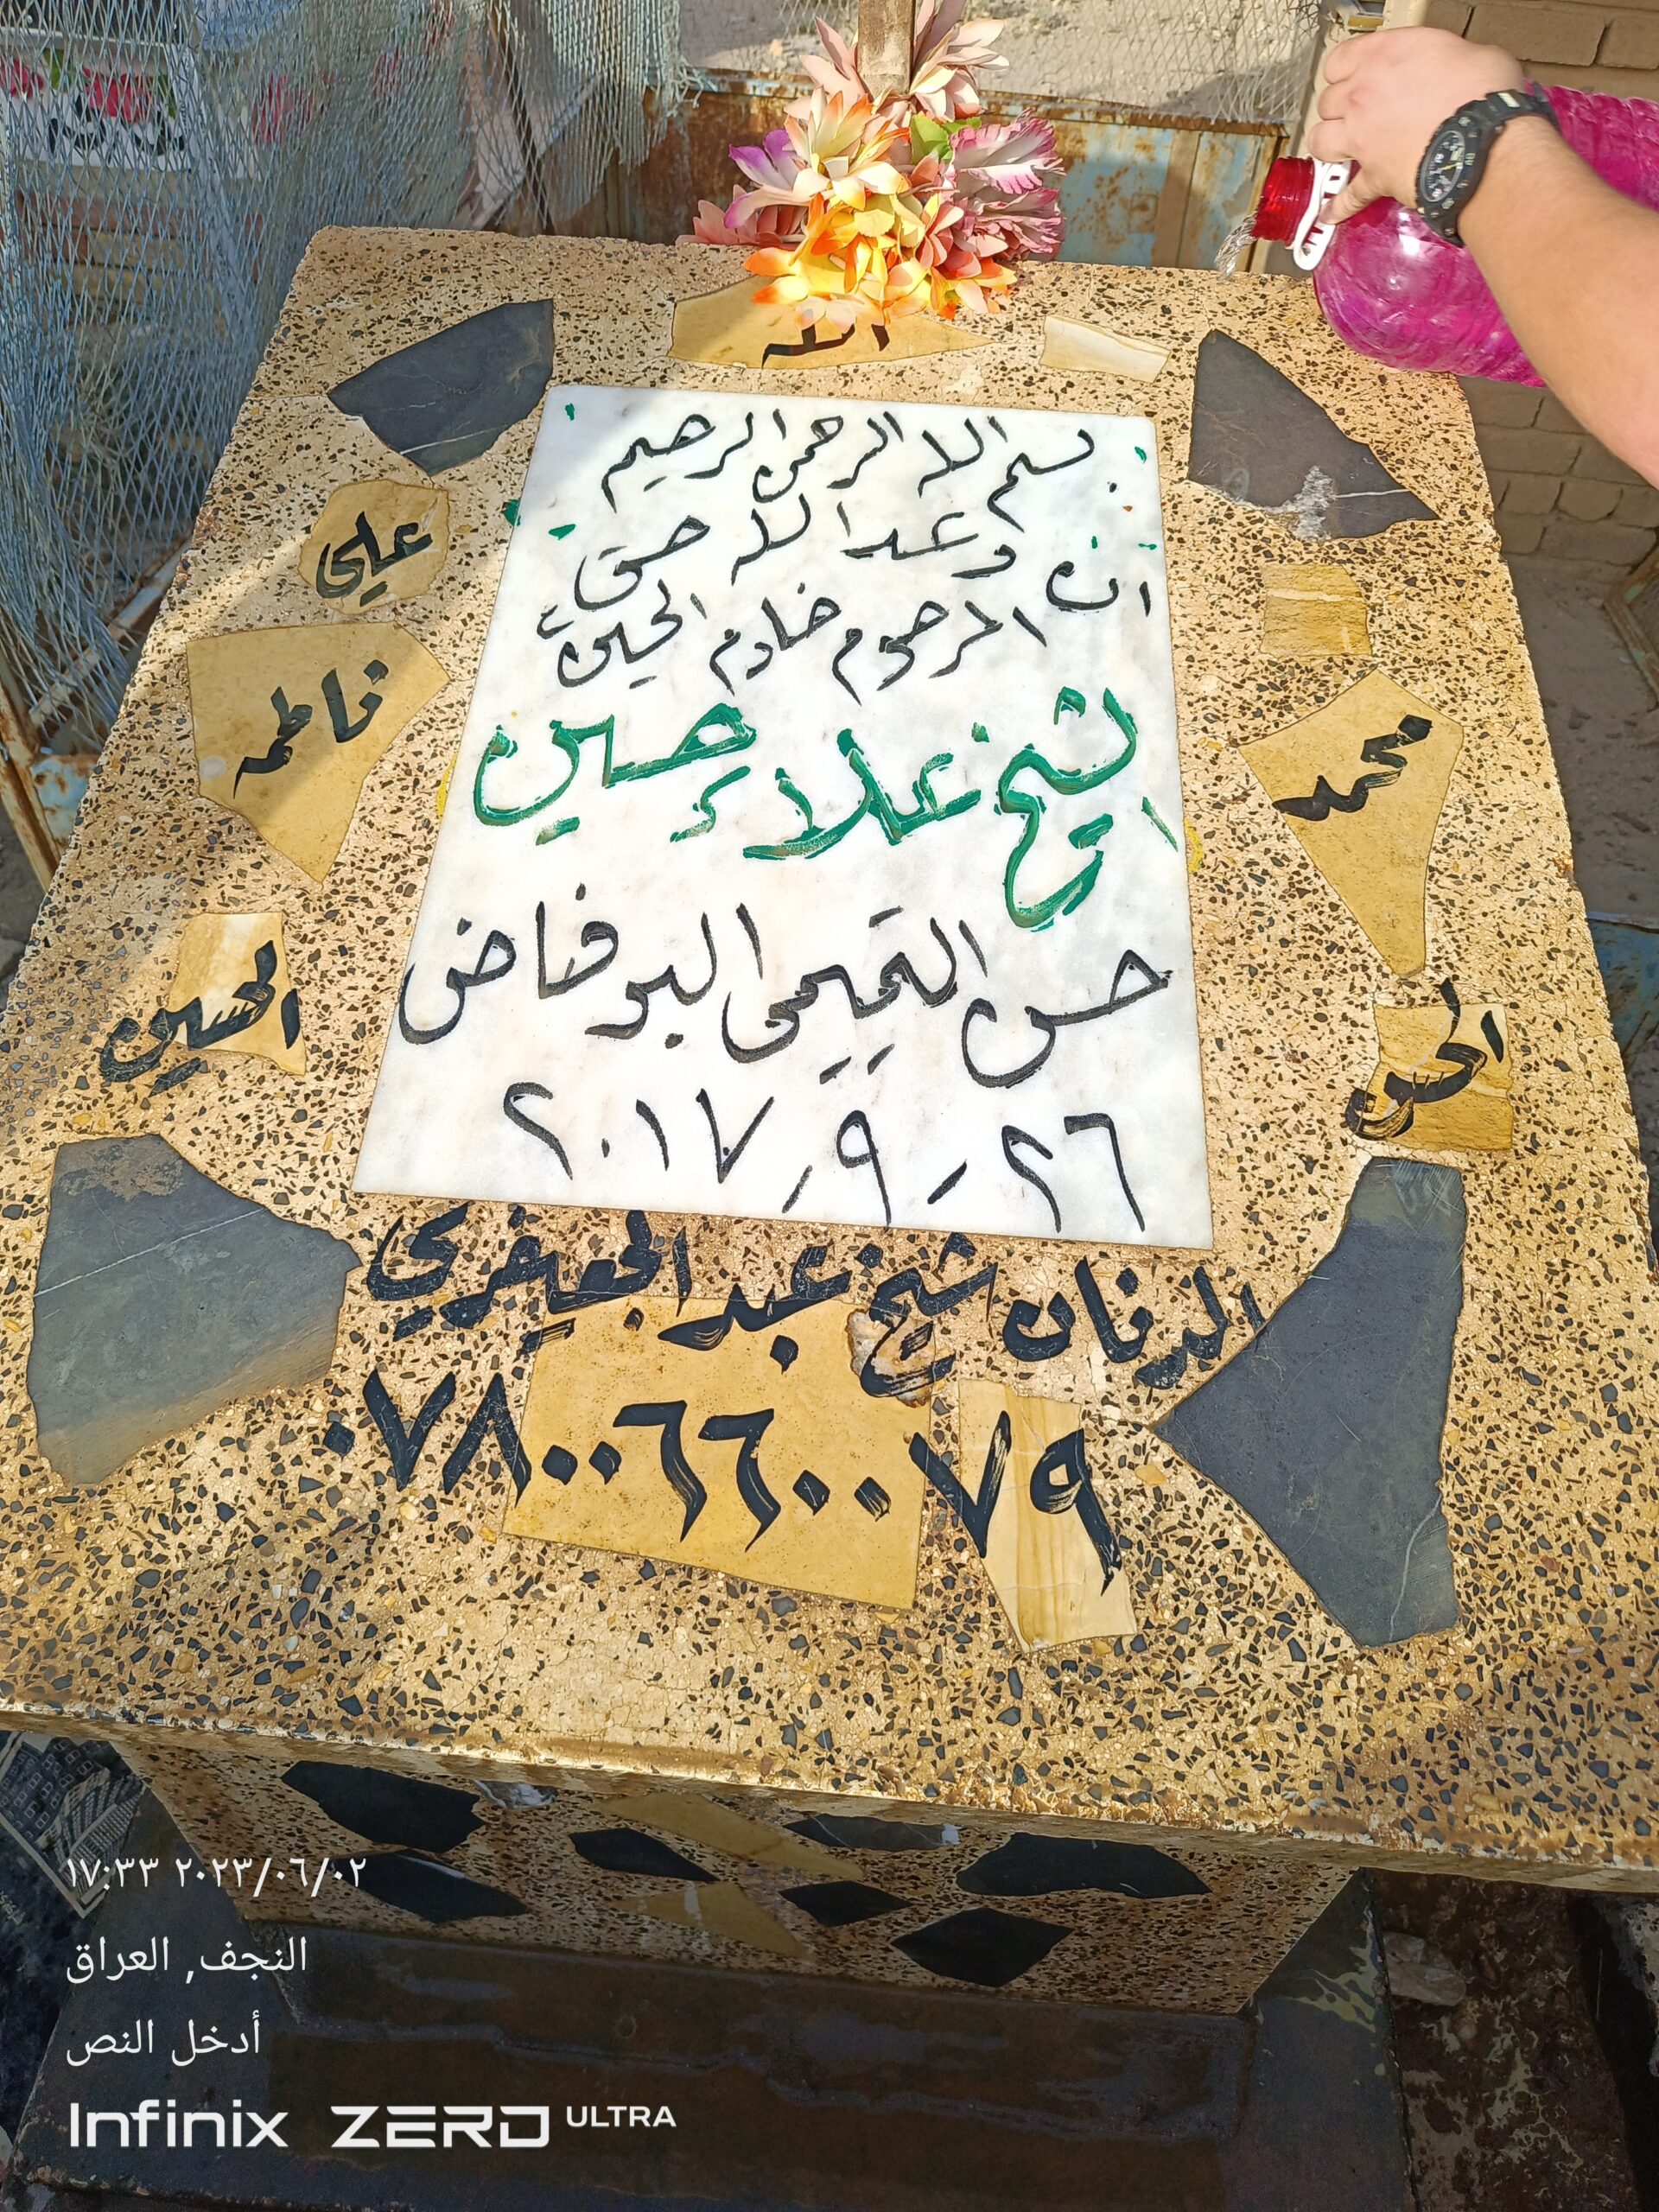 الله
بسم الله الرحمن الرحيم
ان وعد الله حق
المرحوم خادم الحسينؑ
الشيخ علاء حسين
حسن التميمي البو فاض
٢٦-٩-٢٠١٧
علي
فاطمه
الحسين
محمد
الحسن
الدفان شيخ عبد الجعيفري
٠٧٨٠٠٦٦٠٠٧٩
٢٠٢٣/٠٦/٠٢ ١٧:٣٣
النجف, العراق
أدخل النص
Infinix ZERO ULTRA